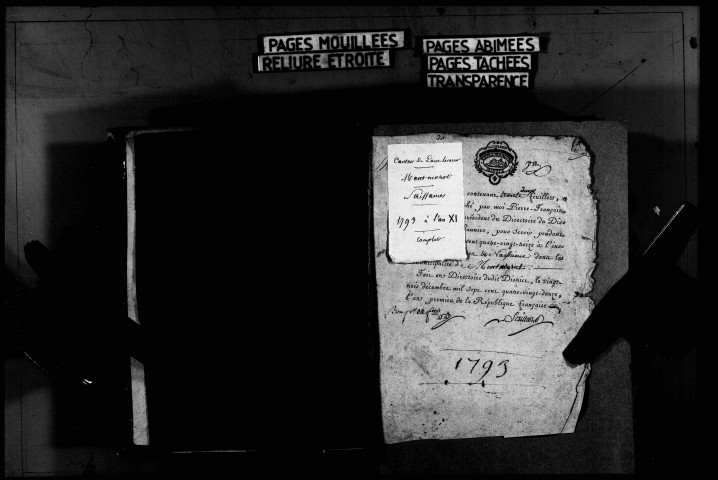 PAGES MOUILLEES
RELIURE ETROITE
PAGES ABIMEES
PAGES TACHEES
TRANSPARENCE
Canton de
Montmorot
Naissances
1793 à l'an XI
Complet
contenant trente feuillets,
par moi Pierre-François
président du Directoire du Dis
pour servir pendant
cent quatre-vingt-treize à l'ins
de Naissance dans les
municipalité de Montmorot
Fait en Directoire dudit District, le vingt-
trois décembre mil sept cent quatre-vingt-douze,
l'an premier de la République française
1793